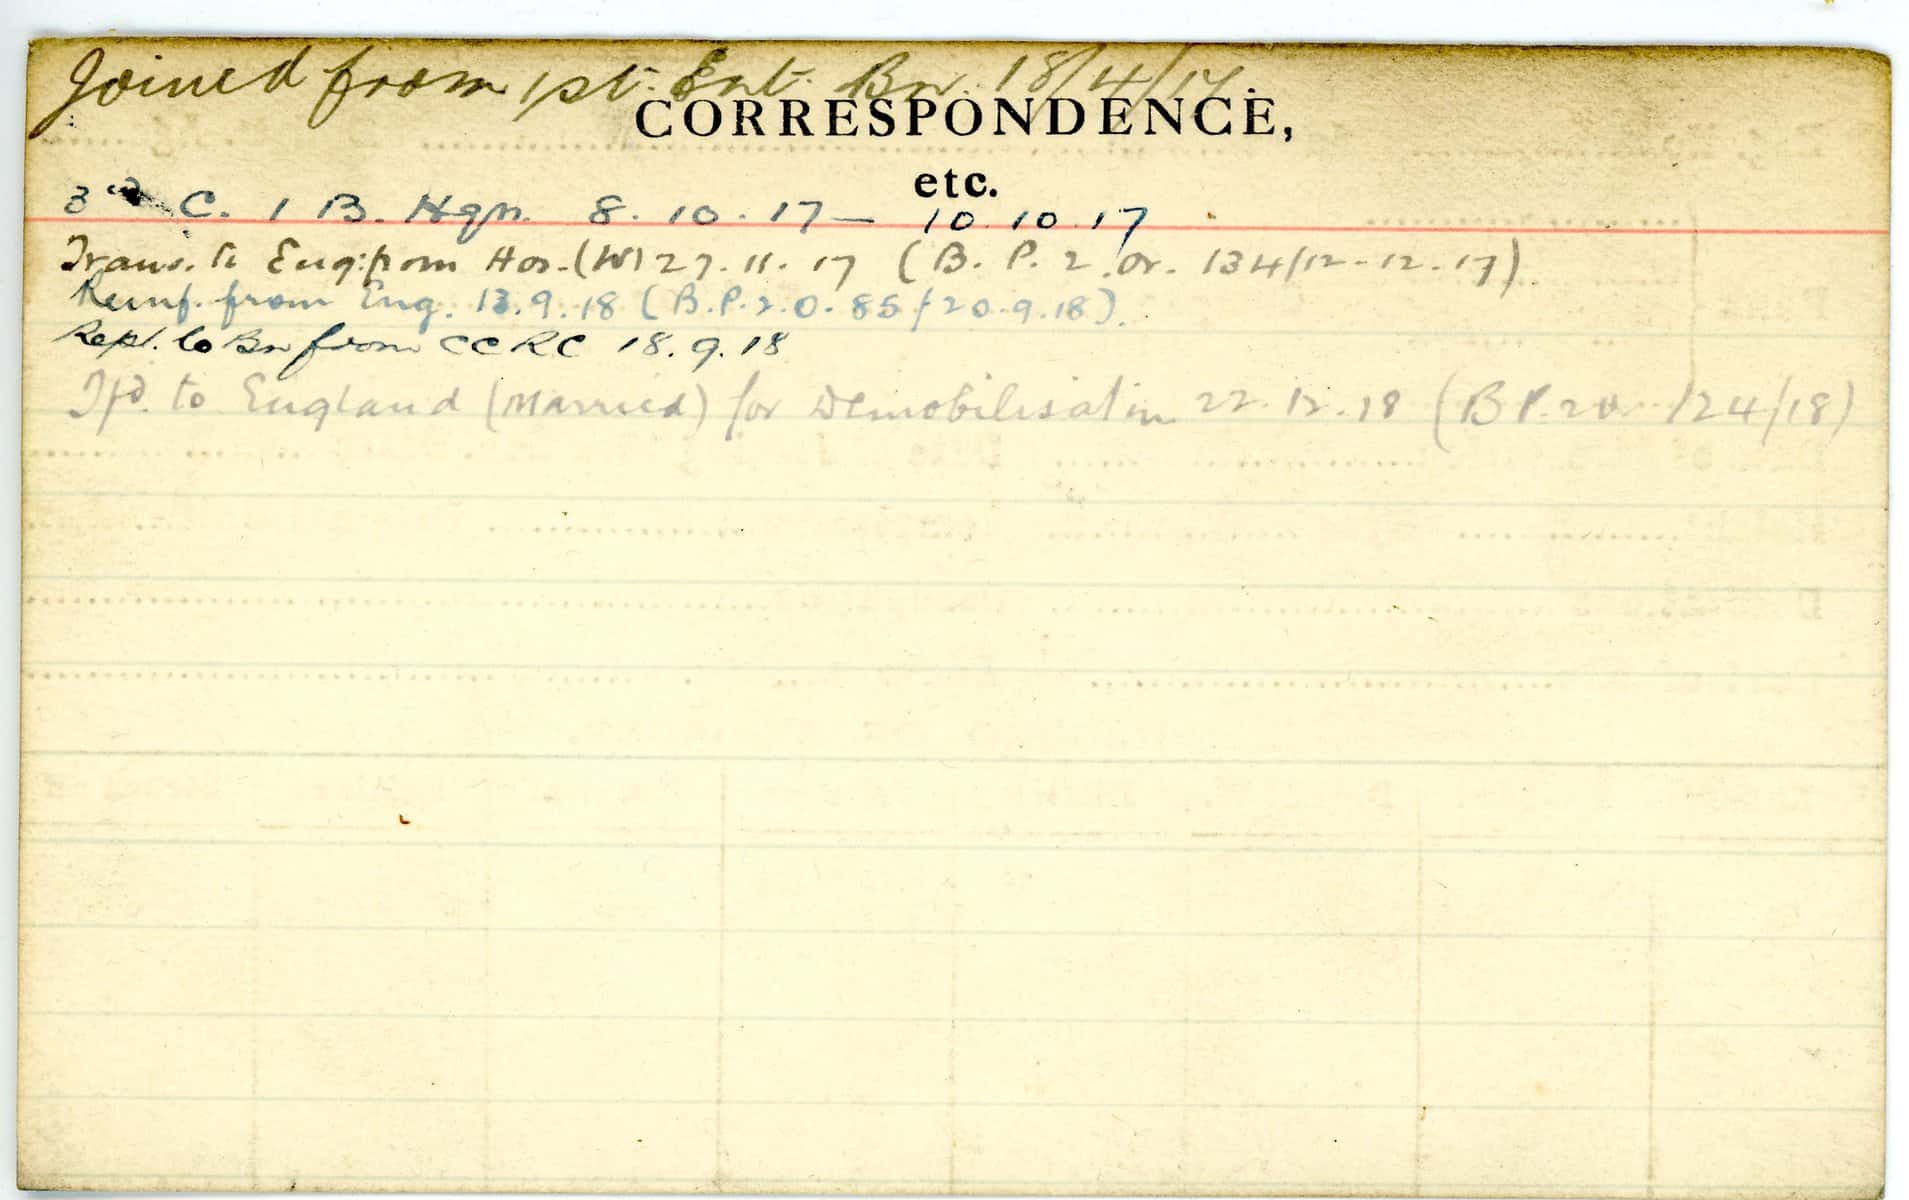 Joined from 1st. Ent. Bn. 18/4/17.
CORRESPONDENCE,
etc.
3rd C. 1 B. Hqn. 8. 10. 17 — 10. 10. 17
Trans. to Eng: from Hos. (W) 27. 11. 17 (B. P. 2. Or. 134/12-12-17)
Reinf. from Eng. 13. 9. 18 (B.P. 2. O. 85/20.9.18).
Rept. to Bn from CCRC 18. 9. 18
Tfd. to England (Married) for Demobilisation 22. 12. 18 (B P. 2 Or 124/18)